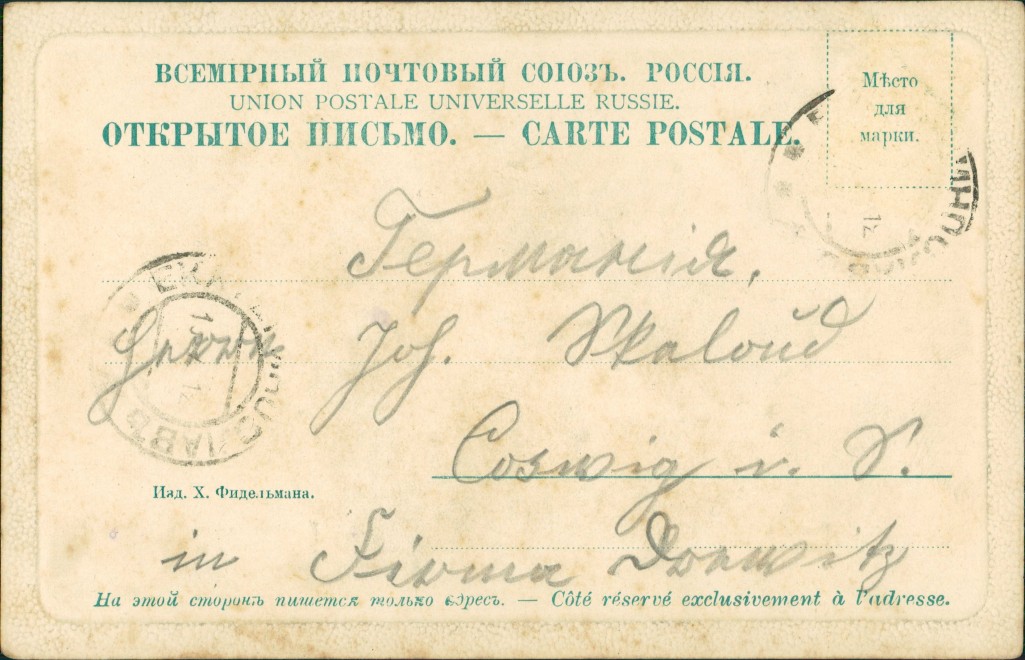 ВСЕМІРНЫЙ ПОЧТОВЫЙ СОЮЗЪ. РОССІЯ.
UNION POSTALE UNIVERSELLE RUSSIE.
ОТКРЫТОЕ ПИСЬМО. — CARTE POSTALE.
Мѣсто
для
марки.
Германія.
Herrn Joh. Skaloud
Coswig i. S.
in Firma Drewitz
Изд. Х. Фидельмана.
На этой сторонѣ пишется только адресъ. — Côté réservé exclusivement à l'adresse.